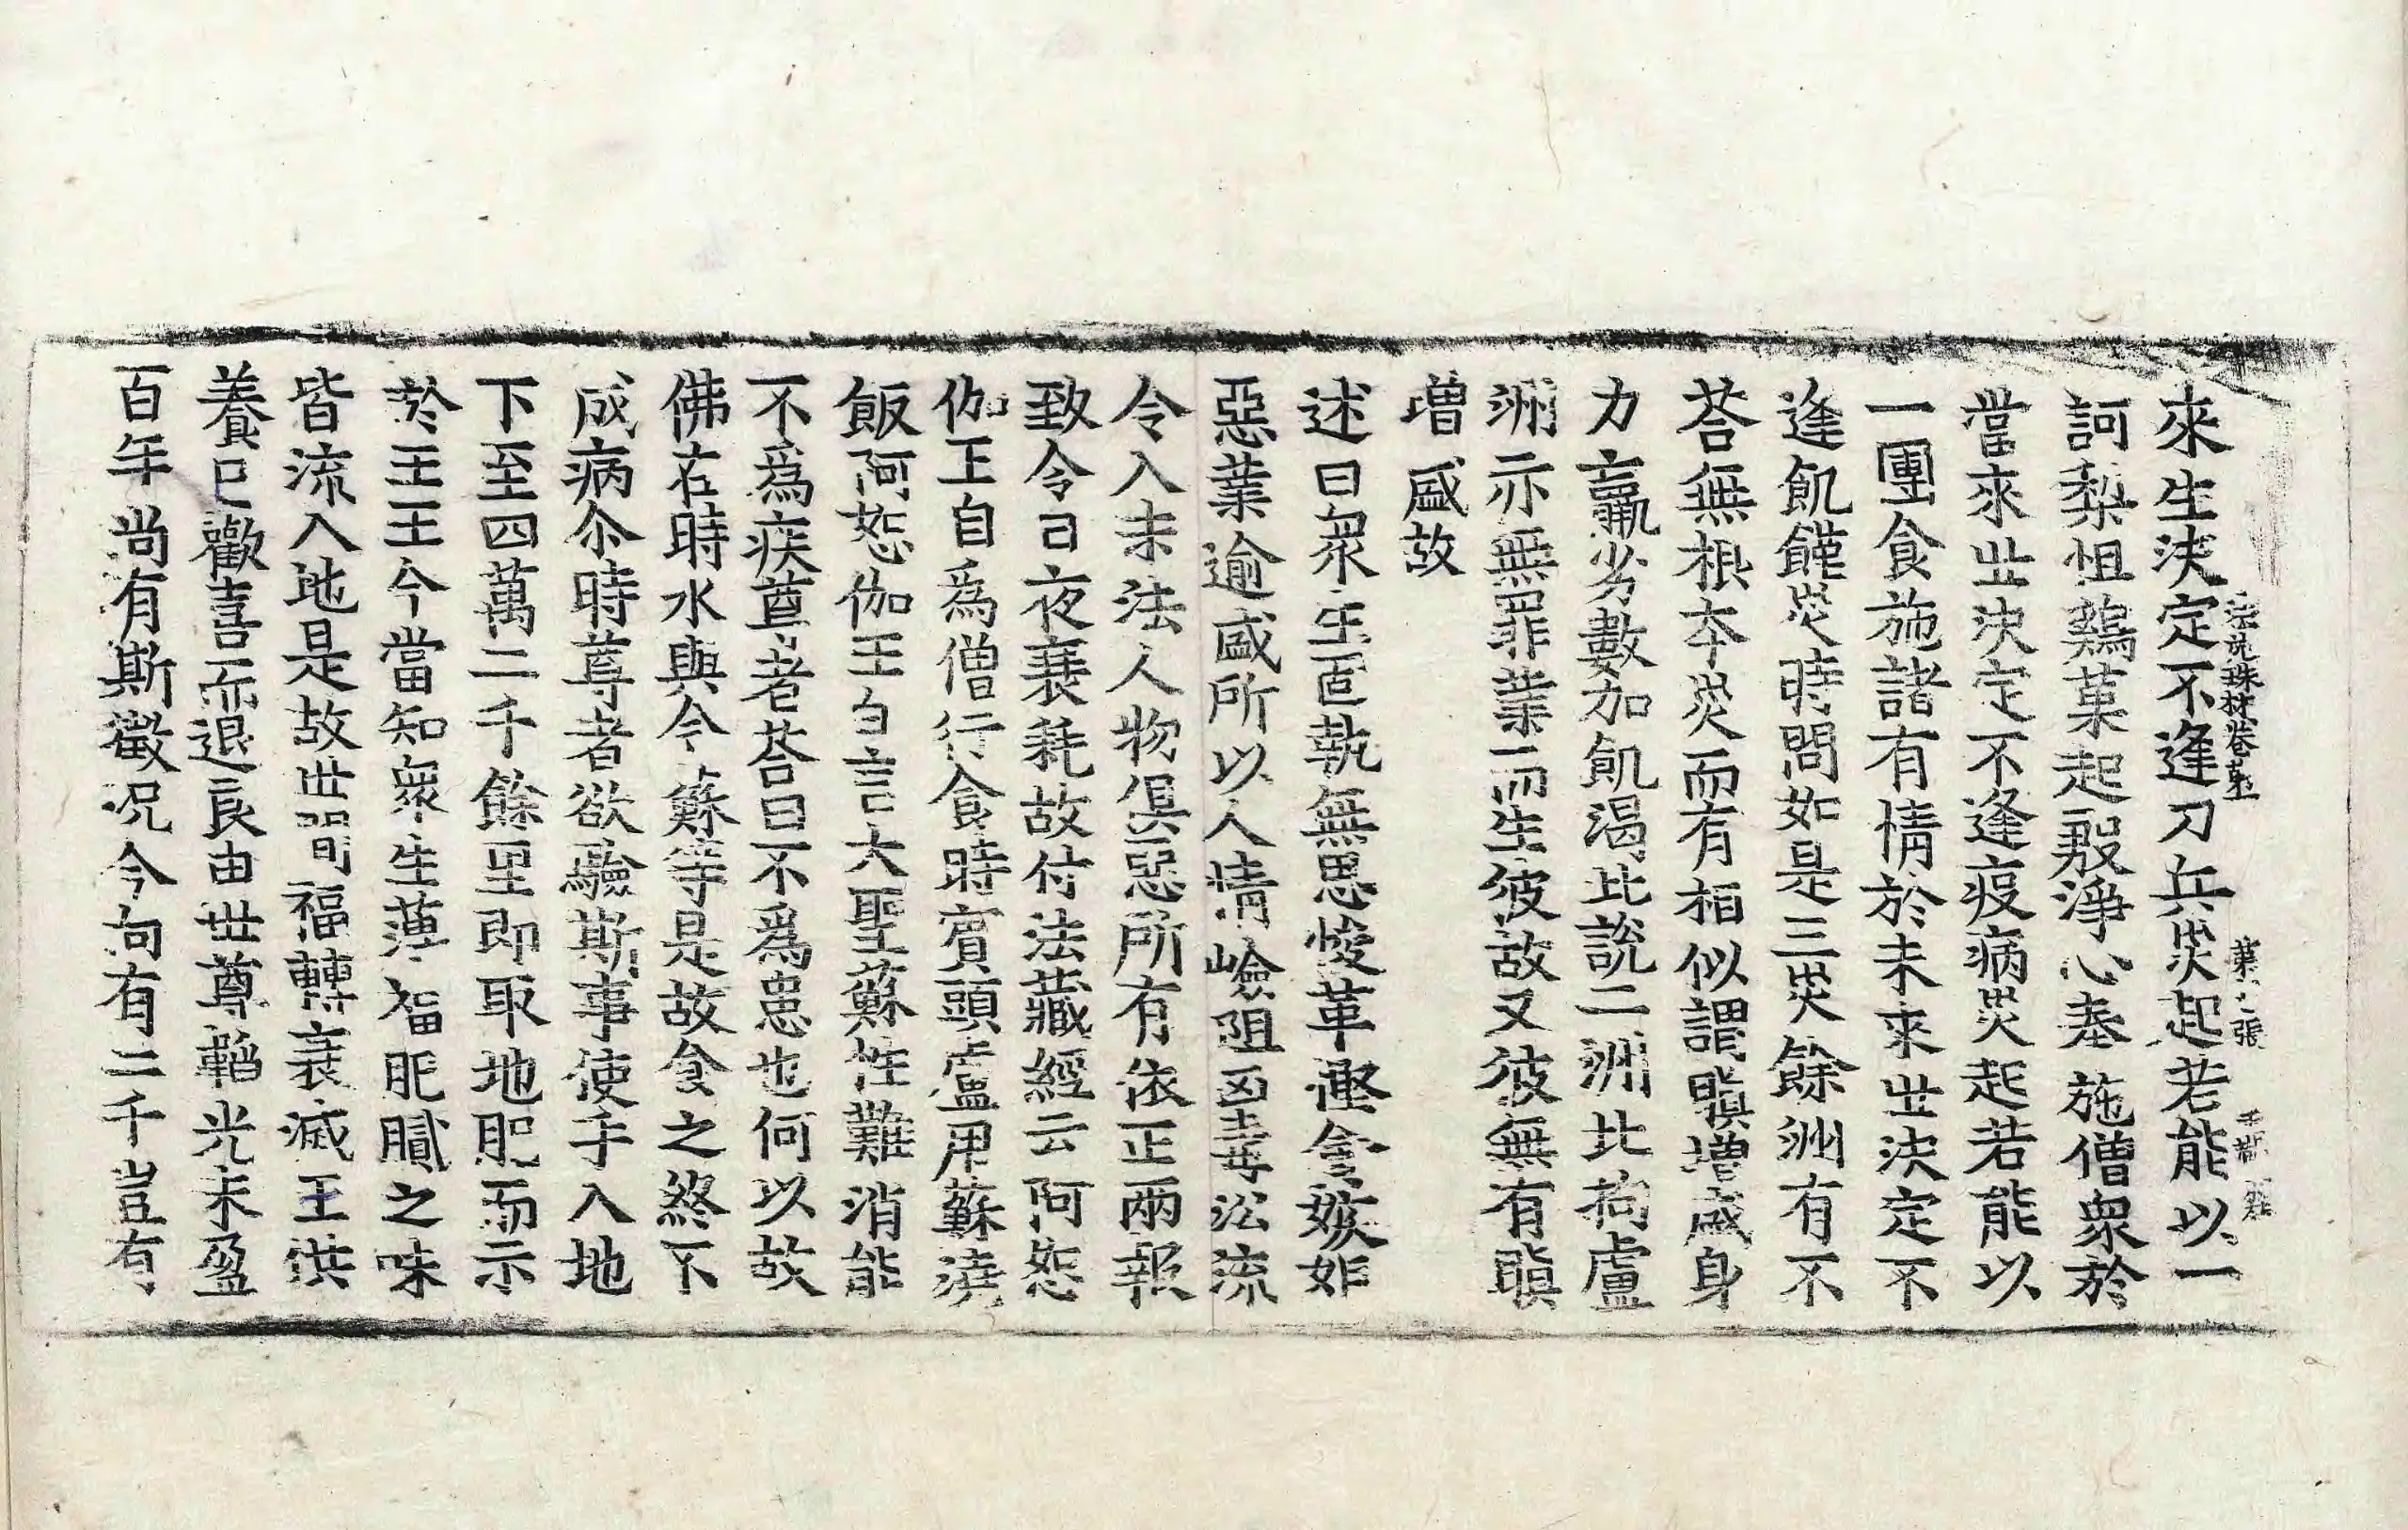 來生決定不逢刀兵災起若能以一
訶梨怛鷄菓起殷淨心奉施僧衆於
當來世決定不逢疫病災起若能以
一團食施諸有情於未來世決定不
逢飢饉災時問如是三災餘洲有不
荅無根本災而有相似謂瞋增盛身
力羸劣數加飢渴此說二洲北拘盧
洲亦無罪業而生彼故又彼無有瞋
增盛故
述曰衆生固執無思悛革慳貪嫉妬
惡業逾盛所以人情嶮阻凶毒訟流
令入末法人物俱惡所有依正兩報
致令日夜衰耗故付法藏經云阿恕
伽王自爲僧行食時賓頭盧用蘇澆
飯阿恕伽王白言大聖蘇性難消能
不爲疾尊者荅曰不爲患也何以故
佛在時水與今蘇等是故食之終不
成病尒時尊者欲驗斯事使手入地
下至四萬二千餘里即取地肥而示
於王王今當知衆生薄福肥膩之味
皆流入地是故世間福轉衰滅王供
養已歡喜而退良由世尊韜光未盈
百年尚有斯徵況今向有二千豈有
法苑珠林卷第